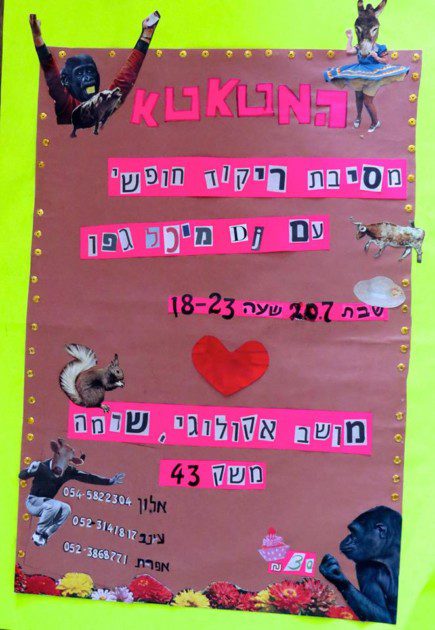 המטאטא
מסיבת ריקוד חופשי
עם Dj מיכל גפן
שבת 20.7 שעה 18-23
מושב אקולוגי, שדמה
משק 43
אלון 054-5822304
עינב 052-3141817
אפרת 052-3868771
30 ₪